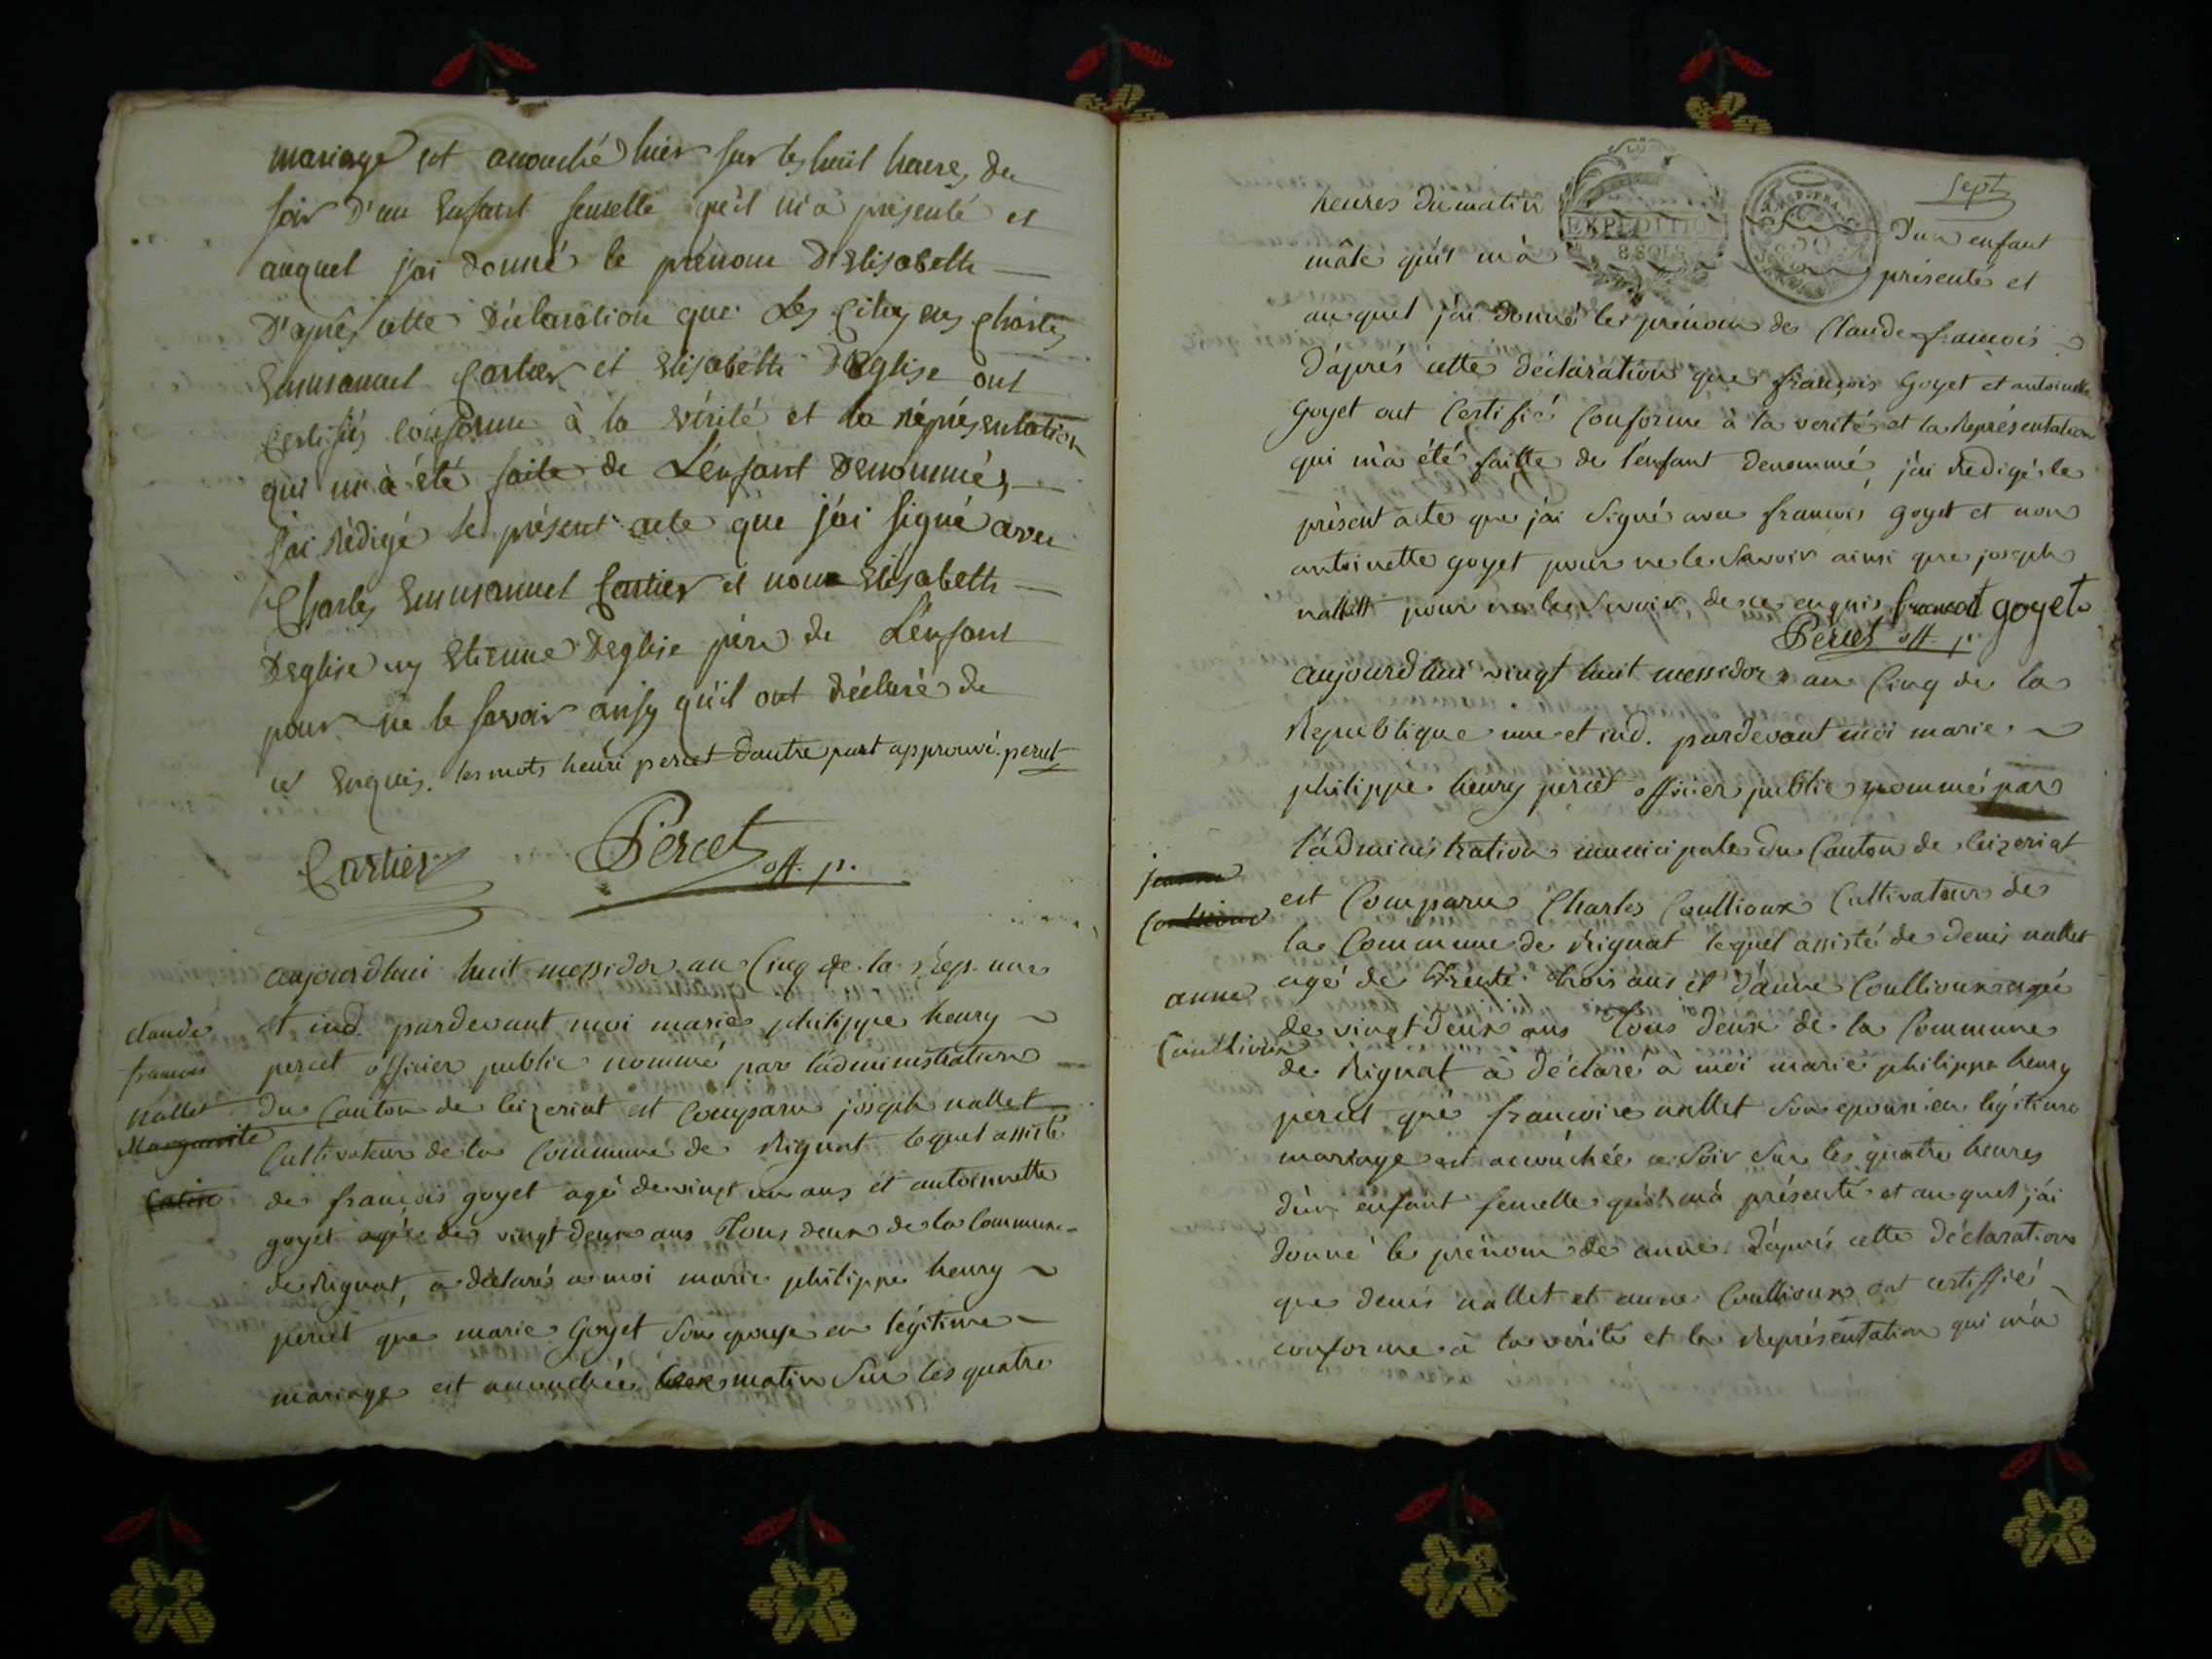 mariage est acouché hier sur les huit heures du
soir d'un Enfant femelle qu'il m'a présenté et
auquel j'ai donné le prénom d'Elisabeth
D'après cette Déclaration que Les Citoyens Charles
Emmanuel Cartier et Elisabeth Deglise ont
Certifiés conforme à la vérité et la réprésentation
qui m'à été faite de L'enfant Denommé,
j'ai rédigé le présent acte que j'ai signé avec
Charles Emmanuel Cartier et non Elisabeth
Deglise ny Etienne Deglise père de L'enfant
pour ne le savoir ansy qu'il ont déclaré de
ce Enquis. les mots henri percet d'autre part approuvé. percet
Cartier Percet off. p.
aujourdhui huit messidor an Cinq de la rép. une
claude
et ind. pardevant moi marie philippe henry
francois
percet officier public nommé par l'administration
nallet
du Canton de Ceizeriat est Comparu joseph nallet
Marguerite
Cultivateur de la Commune de Rignat lequel assisté
de françois goyet agé de vingt un ans et antoinette
goyet agée de vingt deux ans Tous deux de la Commune
de Rignat, a déclaré a moi marie philippe henry
percet que marie Goyet son epouse en légitime
mariage est acouchée matin sur les quatre
sept
heures du matin EXPEDITION 8 SOLS d'un enfant
mâle qu'il m'à présenté et
auquel j'ai donné les prénom de Claude francois
D'aprés cette déclaration que françois Goyet et antoinette
Goyet ont Certifié Conforme à la verité et la Représentation
qui m'a été faitte de l'enfant denommé, j'ai Redigé le
présent acte que j'ai signé avec francois goyet et non
antoinette goyet pour ne le savoir ainsi que joseph
nallett pour ne le savoir de ce enquis francoit goyet
Percet off. p.
aujourdhui vingt huit messidor an Cinq de la
Republique une et ind. pardevant moi marie
philippe henry percet officier public nommé par
l'administration municipale du Canton de Ceizeriat
jeanne
est Comparu Charles Coullioux Cultivateur de
la Commune de Rignat lequel assisté de denis nallet
anne
agé de trente trois ans et d'anne Coullioux agée
de vingt deux ans Tous deux de la Commune
Coullioux
de Rignat à déclaré à moi marie philippe henry
percet que francoise nallet son epouse en légitime
mariage est acouchée ce soir sur les quatre heures
d'un enfant femelle qu'il m'à présenté et auquel j'ai
donné le prénom de anne. D'aprés cette déclaration
que denis nallet et anne Coullioux ont certiffié
conforme à la vérité et la Représentation qui m'a